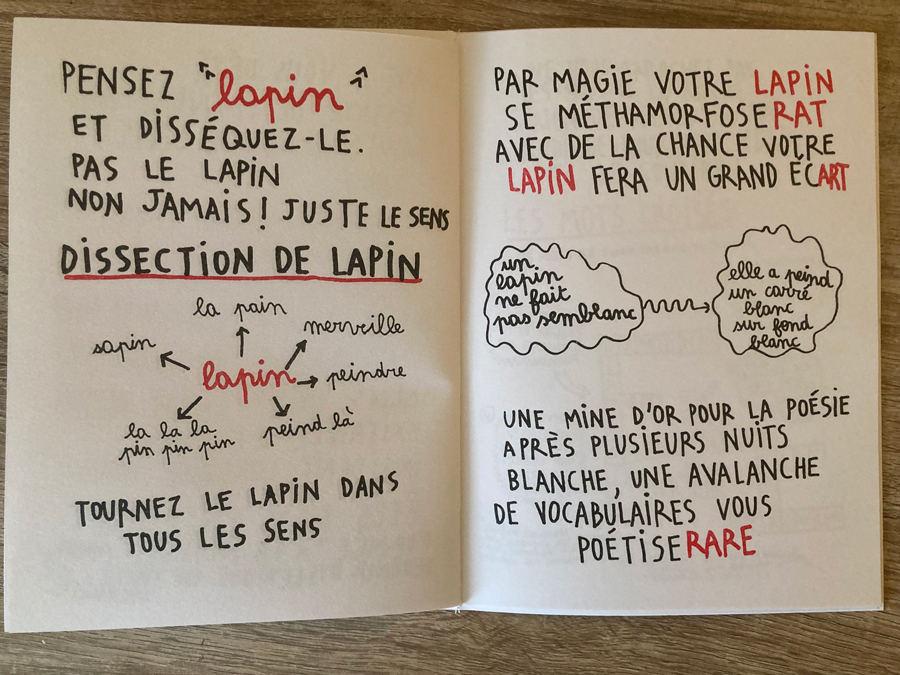 PENSEZ "lapin"
ET DISSÉQUEZ-LE.
PAS LE LAPIN
NON JAMAIS! JUSTE LE SENS
DISSECTION DE LAPIN
la pain
merveille
sapin
lapin
peindre
la la la
pin pin pin
peind là
TOURNEZ LE LAPIN DANS
TOUS LES SENS
PAR MAGIE VOTRE LAPIN
SE MÉTHAMORFOSERAT
AVEC DE LA CHANCE VOTRE
LAPIN FERA UN GRAND ÉCART
un
lapin
ne fait
pas semblanc
elle a peind
un carré
blanc
sur fond
blanc
UNE MINE D'OR POUR LA POÉSIE
APRÈS PLUSIEURS NUITS
BLANCHE, UNE AVALANCHE
DE VOCABULAIRES VOUS
POÉTISERARE